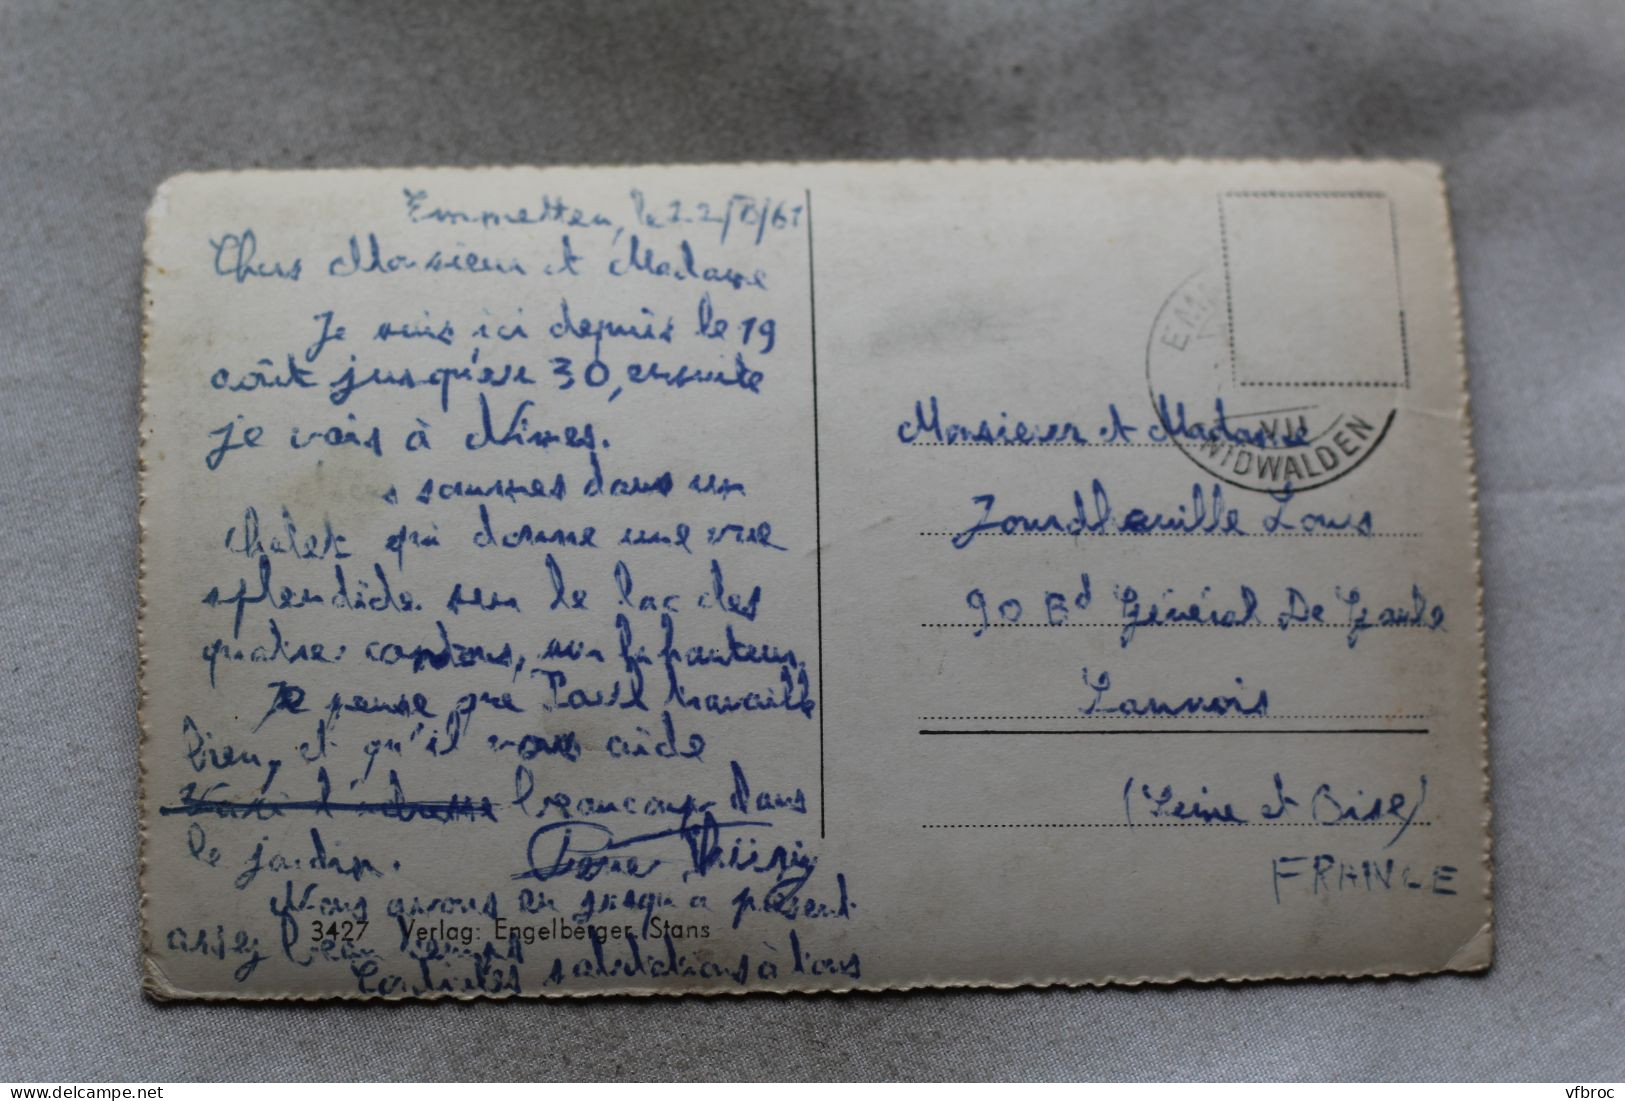 Emmetten, le 22/8/61
Chers Monsieur et Madame
Je suis ici depuis le 19
août jusqu'au 30, ensuite
je vais à Nîmes.
sommes dans un
chalet qui donne une vue
splendide sur le lac des
quatre cantons, sur les hauteurs.
Je pense que Paul travaille
bien, et qu'il vous aide
Voici l'adresse beaucoup dans
le jardin.
Nous avons eu jusqu'à présent
assez beau temps
Cordiales salutations à tous
3427 Verlag: Engelberger Stans
EMM
VII
NIDWALDEN
Monsieur et Madame
Jourdheuille Louis
90 Bd Général De Gaule
Sannois
(Seine et Oise)
FRANCE
www.delcampe.net
vfbroc